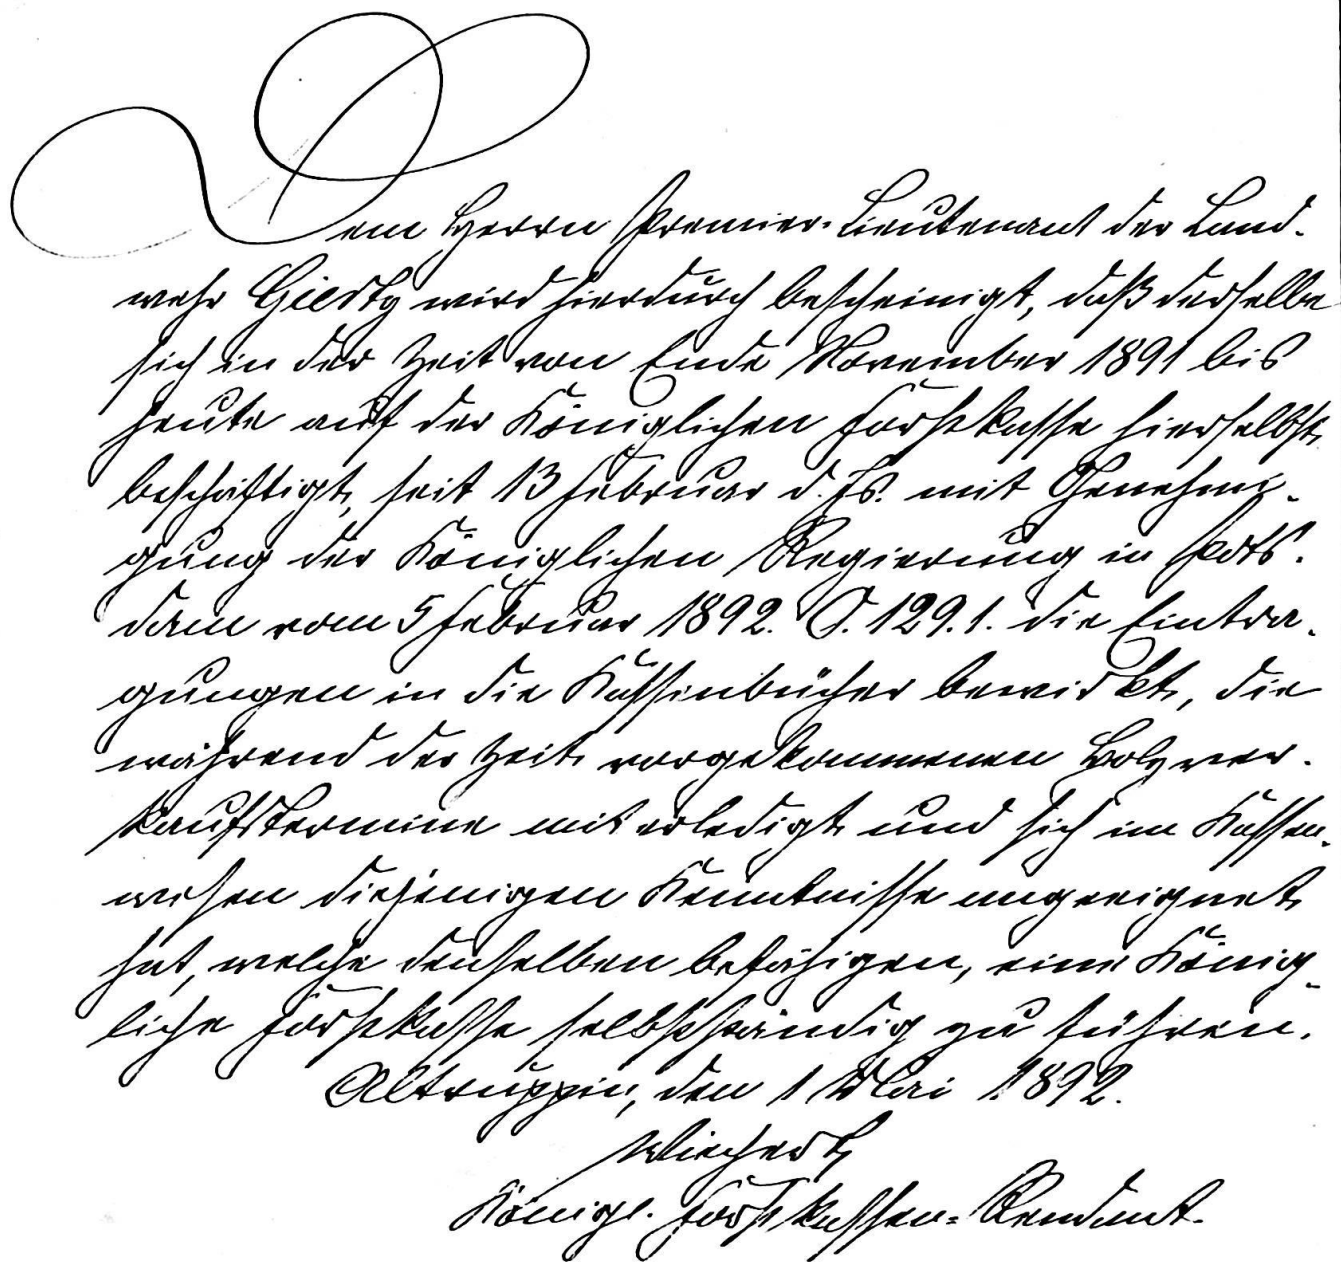 Dem Herrn Premier-Lieutenant der Land-
wehr wird hierdurch bescheinigt, daß derselbe
sich in der Zeit von Ende November 1891 bis
heute auf der Königlichen Forstkasse hierselbst
beschäftigt, seit 13 Februar d. Js. mit Genehmi-
gung der Königlichen Regierung in Pots-
dam vom 5 Februar 1892. 129.1. die Eintra-
gungen in die Kassenbücher bewirkt, die
während der Zeit vorgekommenen Holzver-
kaufstermine mit erledigt und sich im Kassen-
wesen diejenigen Kenntnisse angeeignet
hat, welche denselben befähigen, eine König-
liche Forstkasse selbstständig zu führen.
Altruppin, den 1 Mai 1892.
Wiechert
Königl. Forstkassen-Rendant.